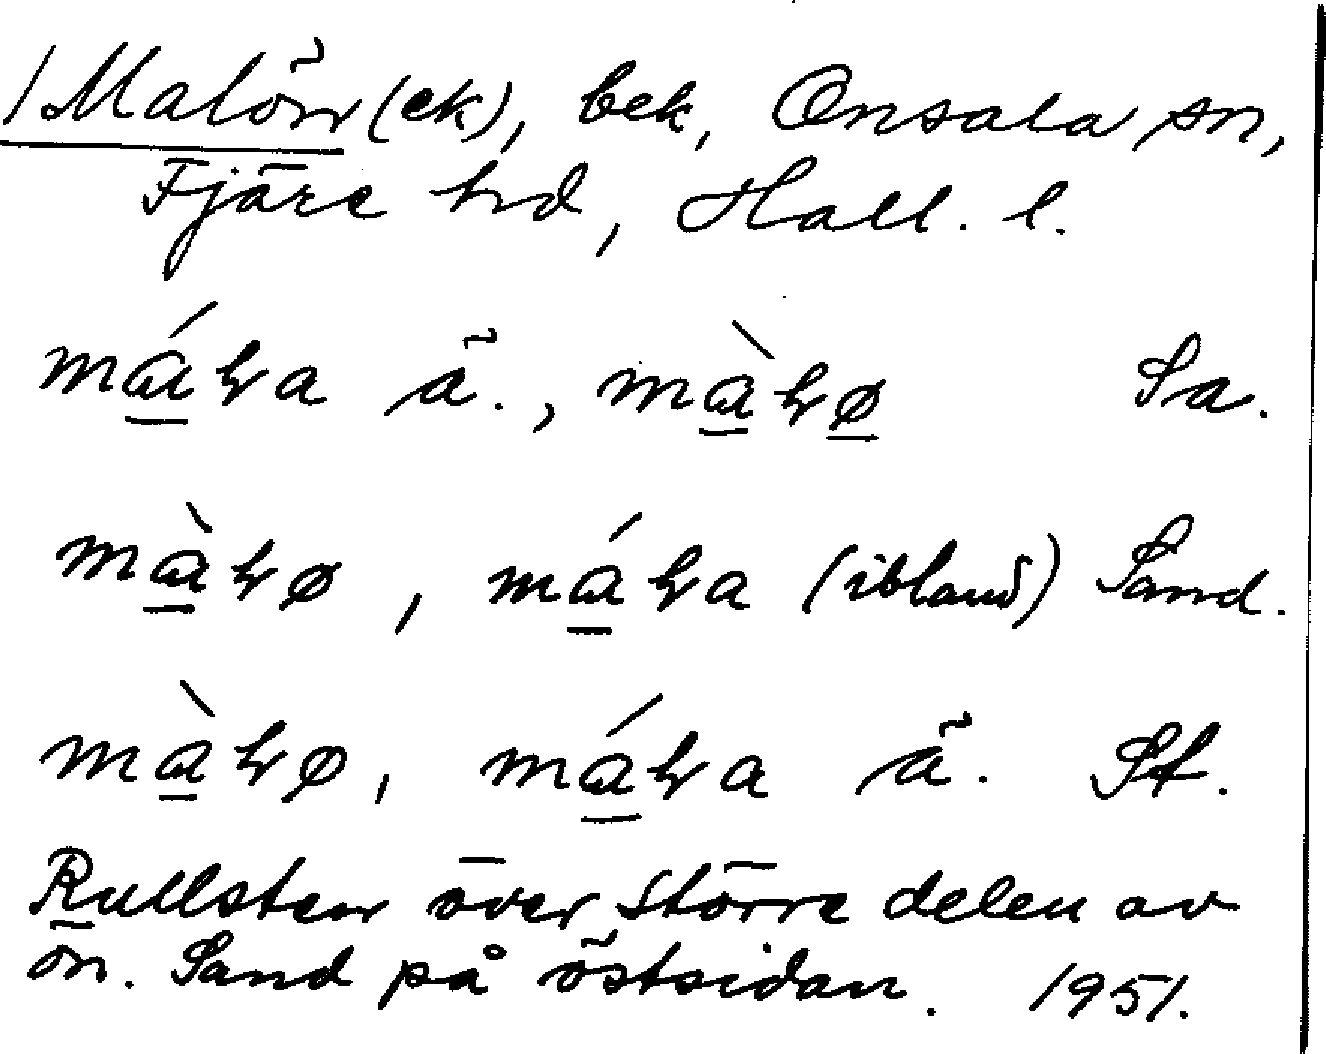 /Malön (ek), bek, Onsala sn,
Fjäre hd, Hall. l.
má̱ɫa ä., mà̱ɫø̱ Sa.
mà̱ɫø, má̱ɫa (ibland) Sand.
mà̱ɫø, má̱ɫa ä. Sf.
Rullsten över större delen av
ön. Sand på östsidan. 1951.